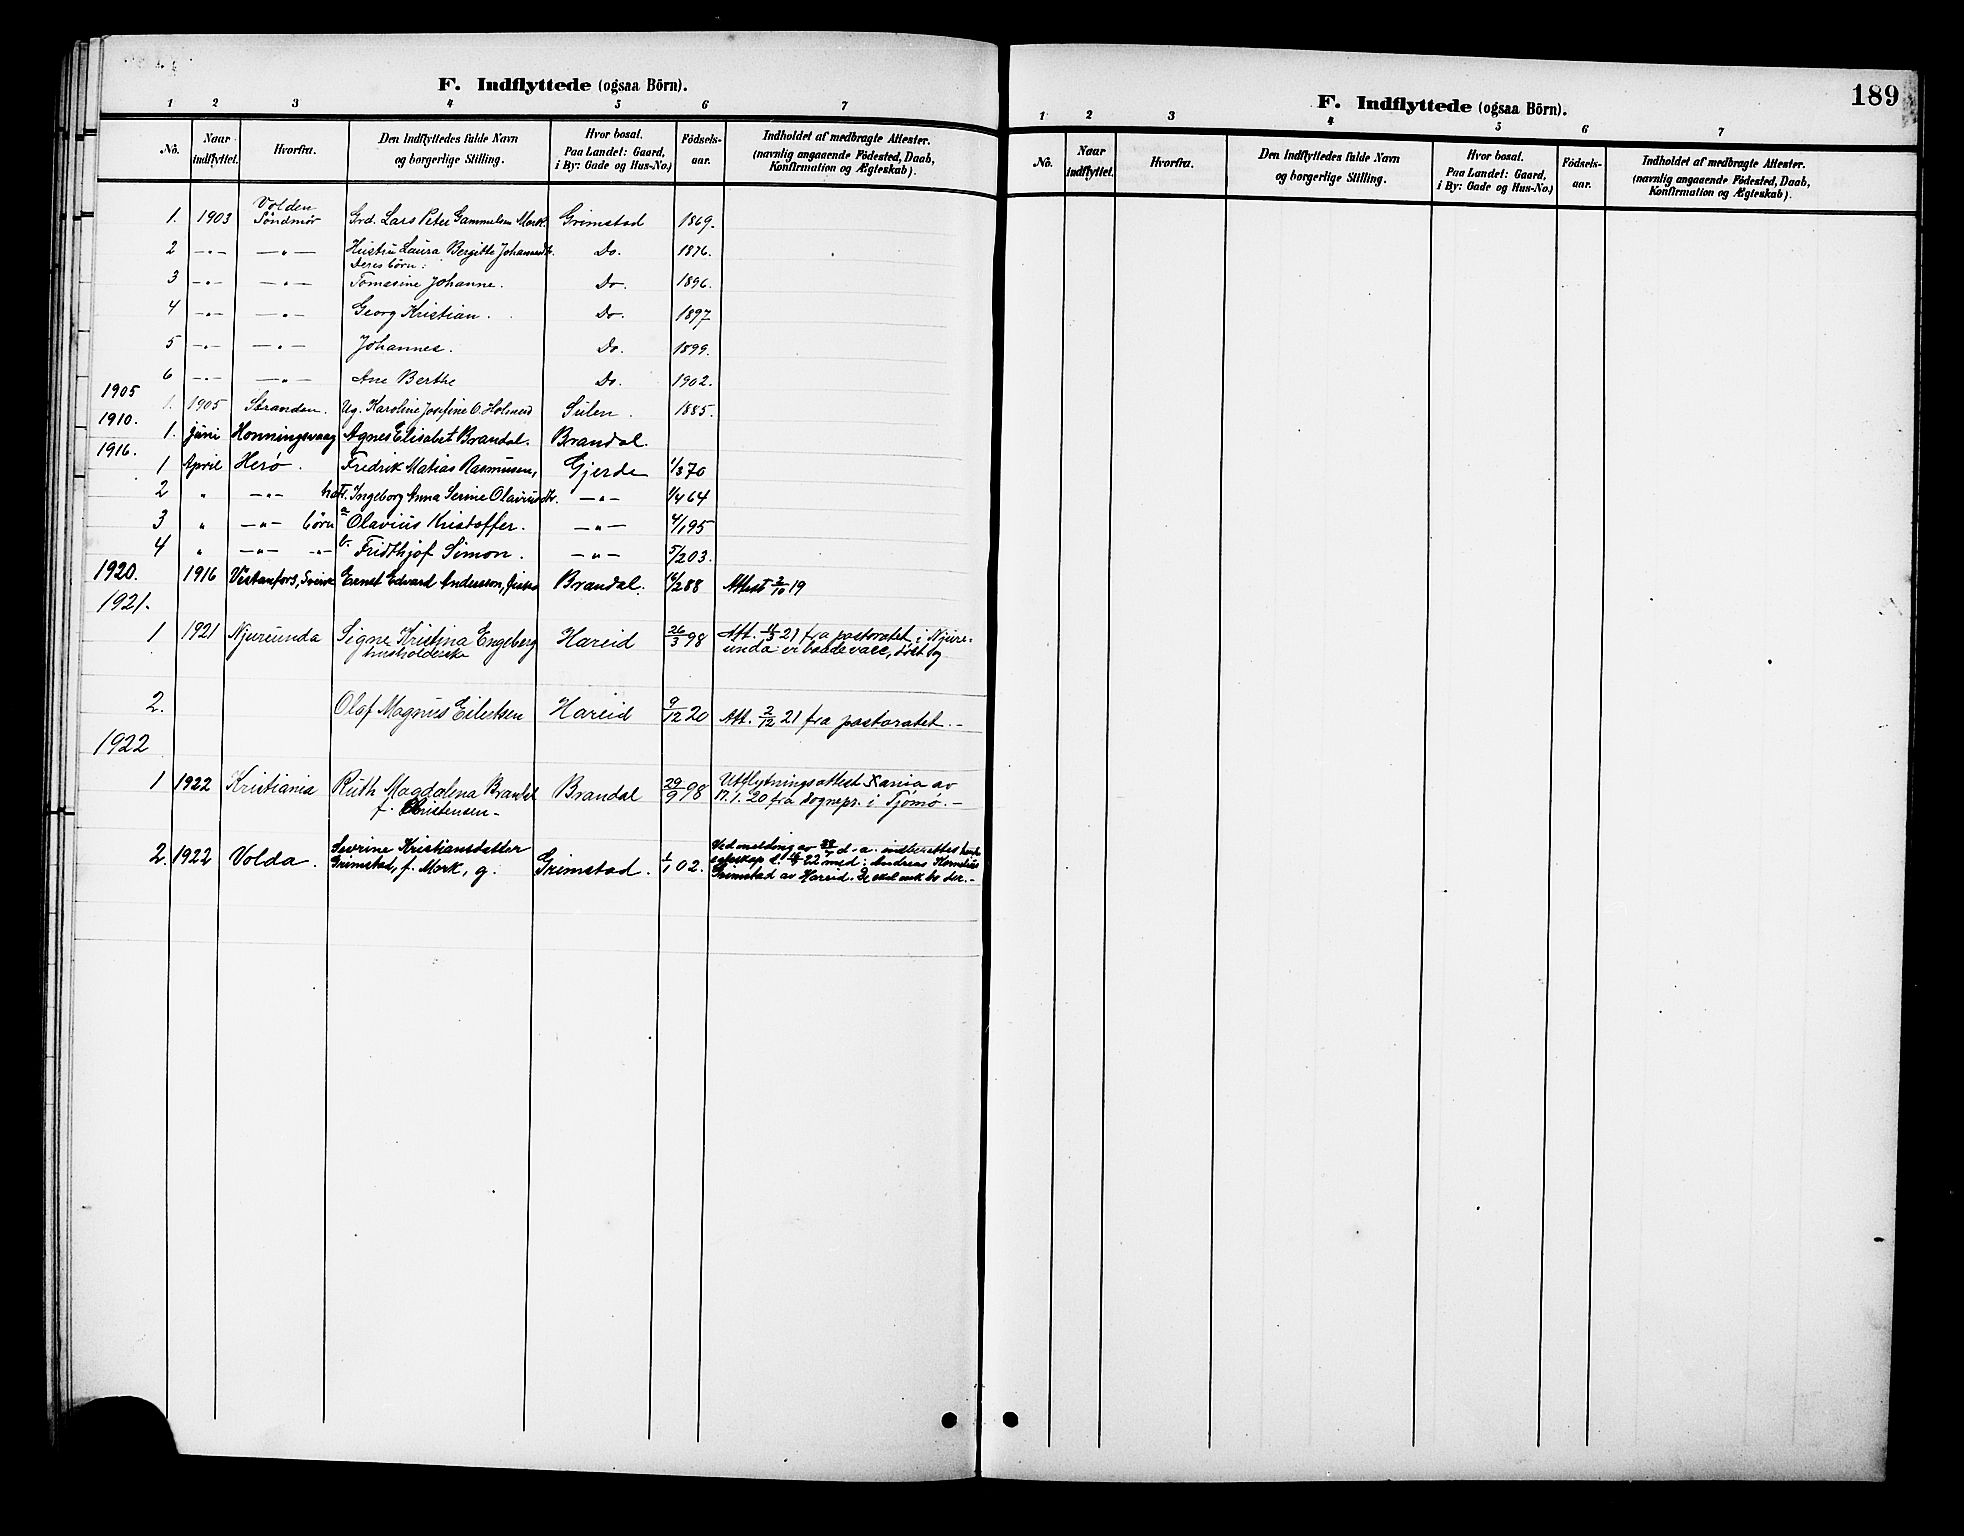 F. Indflyttede (ogsaa Börn).
1 2 3 4 5 6 7
No. Naar indflyttet. Hvorfra. Den Indflyttedes fulde Navn og borgerlige Stilling. Hvor bosat. Paa Landet: Gaard, i By: Gade og Hus-No.) Födsels-aar. Indholdet af medbragte Attester. (navnlig angaaende Födested, Daab, Konfirmation og Ægteskab).
1. 1903 Volden Söndmör Grd. Lars Peter Sammelsen Mork. Grimstad 1869.
2 -"- -"- Hustru Laura Bergitte Johannesdtr. Do. 1876.
Deres börn:
3 -"- -"- Tomasine Johanne. Do. 1896.
4 -"- -"- Georg Kristian. Do. 1897
5 -"- -"- Johannes. Do. 1899.
6 -"- -"- Ane Berthe Do. 1902.
1905
1. 1905 Stranden. Ug. Karoline Josefine O. Sulen. 1885.
1910.
1. Juni Honningsvaag Agnes Elisabet Brandal. Brandal.
1916.
1 April Herø. Fredrik Matias Rasmussen, Gjerde 1/3 70
2 " -"- Ingeborg Anna Serine Olaviusdtr. -"- 1/4 64
3 " -"- børn a Olavius Kristoffer. -"- 4/1 95
4 " -"- -"- b. Fridthjof Simon. -"- 5/2 03.
1920. 1916 Vestanfors, Ernst Edvard Andersson, Brandal. /2 88 Attest 2/10 19
1921.
1 1921 Njurunda Signe Kristina Engberg Hareid 26/3 98 Att. 21 fra pastoratet i Njur-
husholderske unda:
2. Olaf Magnus Eilertsen Hareid 9/12 20 Att. 2/12 21 fra pastoratet.-
1922
1 1922 Kristiania Ruth Magdalena Brandal Brandal 29/9 98 Utflytningsattest Xania av
f. Christensen- 17.1.20 fra sognepr. i Tjömö.-
2. 1922 Volda. Severine Kristiansdatter Grimstad, f. Mork, g. Grimstad. 1/1 02. Ved melding av d.a. indberettes
egteskap 22 med: Andreas Kornelius
Grimstad av Hareid. De skal bo der.-
F. Indflyttede (ogsaa Börn).
189
1 2 3 4 5 6 7
No. Naar indflyttet. Hvorfra. Den Indflyttedes fulde Navn og borgerlige Stilling. Hvor bosat. Paa Landet: Gaard, i By: Gade og Hus-No.) Födsels-aar. Indholdet af medbragte Attester. (navnlig angaaende Födested, Daab, Konfirmation og Ægteskab).